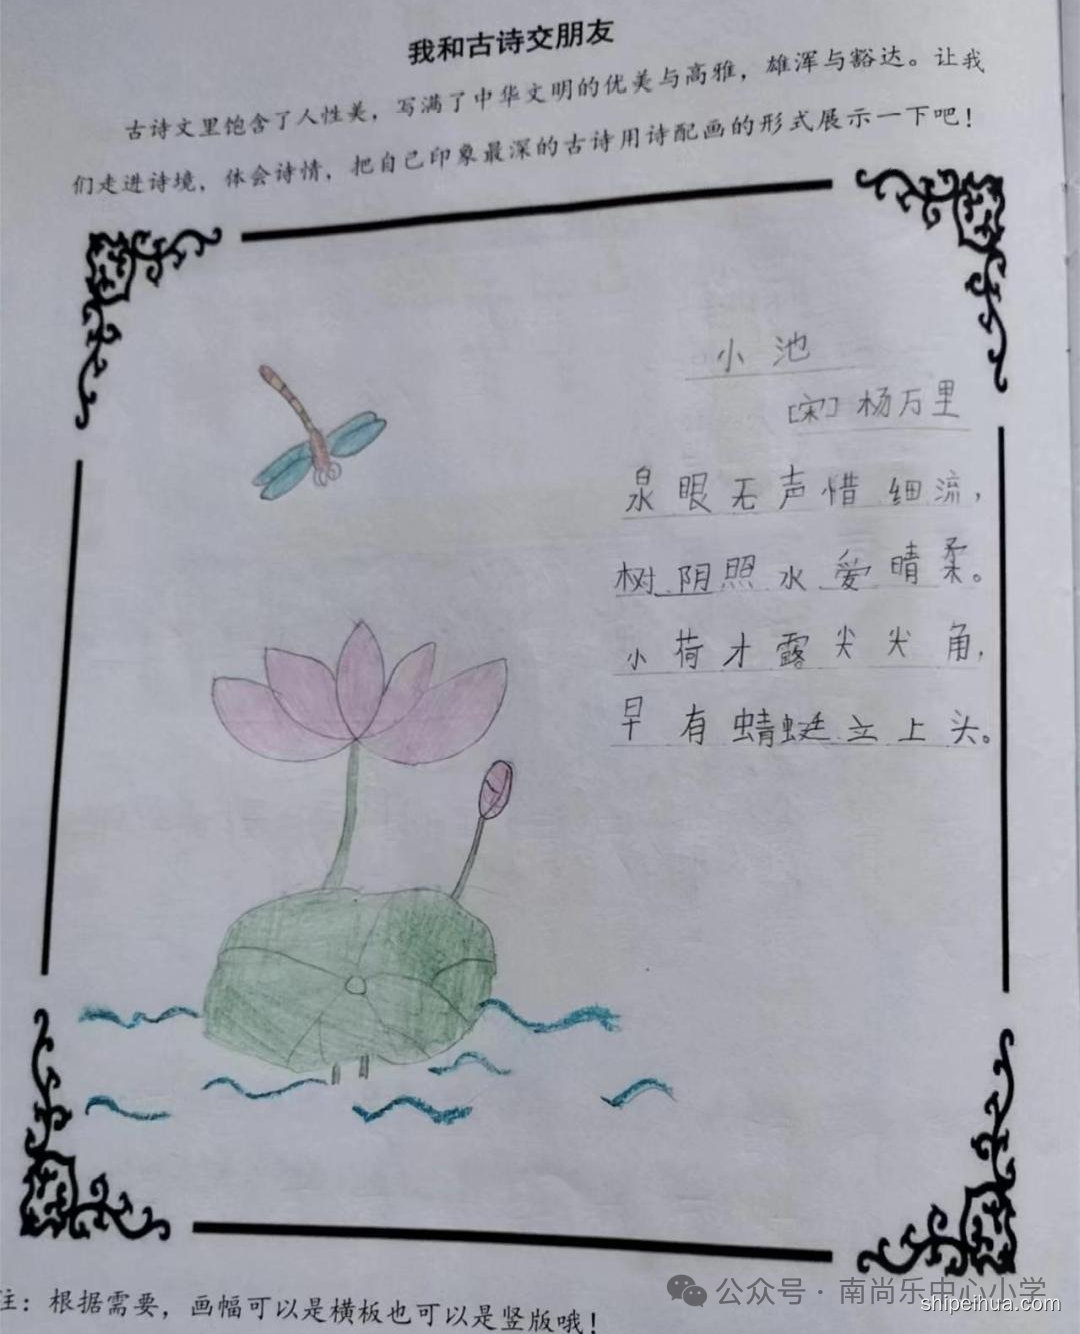 我和古诗交朋友
古诗文里饱含了人性美，写满了中华文明的优美与高雅，雄浑与豁达。让我
们走进诗境，体会诗情，把自己印象最深的古诗用诗配画的形式展示一下吧！
小池
[宋] 杨万里
泉眼无声惜细流，
树阴照水爱晴柔。
小荷才露尖尖角，
早有蜻蜓立上头。
注：根据需要，画幅可以是横板也可以是竖版哦！
公众号·南尚乐中心小学
shipeihua.com